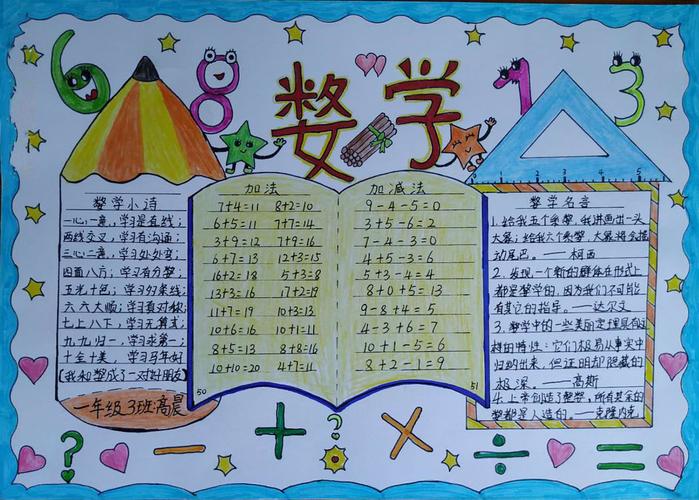 6 8 数学 1 3
1 2 3 4 5
数学小诗
一心一意,学习是直线;
两线交叉,学习有沟通;
三心二意,学习处处弯;
四面八方,学习有力攀;
五光十色,学习多条线;
六六大顺,学习真对称;
七上八下,学习无算式;
九九归一,学习求第一;
十全十美,学习
(我和数成了一对好朋友)
一年级3班:高晨
加法
7+4=11 8+2=10
6+5=11 7+7=14
3+9=12 7+9=16
6+7=13 12+3=15
16+2=18 5+3=8
13+3=16 17+2=19
11+7=19 10+3=13
10+6=16 10+1=11
8+5=13 8+8=16
10+10=20 4+7=11
50
加减法
9-4-5=0
3+5-6=2
7-4-3=0
4+5-3=6
5+3-4=4
8+0+5=13
9-8+4=5
4-3+6=7
10+1-5=6
8+2-1=9
51
数学名音
1.给我五个系数,我将画出一头
大象;给我六个系数,大象将会摇
动尾巴。——柯西
2.发现,一个新的群体在形式上
都是数学的,因为我们不可能
有其它的指导。——达尔文
3.数学中的一些美丽定理具有这
样的特性:它们极易从事实中
归纳出来,但证明却隐藏的
极深。——高斯
4.上帝创造了整数,所有其余的
数都是人造的。——克隆内克
? - + ? × ÷ =